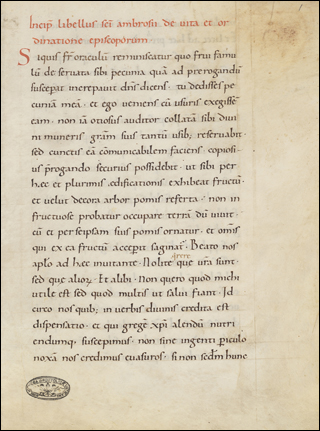 Incip̄ libellus sc̄i ambrosii de uita et or
dinatione episcoporum.
Siquis fr̄ oraculū reminiscatur quo frui famu
lū de seruata sibi pecunia quā ad prerogandū
susceperat increpauit dn̄s dicens. tu dedisses pe
cuniā meā. et ego ueniens cū usuris exegissē
eam. non iā otiosus auditor collatā sibi diui
ni muneris gr̄am suis tantū usib; reseruabit
sed cunctis eā cōmunicabilem faciens. copiosi
us p̄rogando securius possidebit. ut sibi per
hęc et plurimis ędificationis exhibeat fructū.
et uelut decora arbor pomis referta. non in
fructuose probatur occupare terrā dū uiuit.
cū et per se ipsam suis pomis ornatur. et omīs
qui ex ea fructū acceperit saginat̄. Beato nos
apl̄o ad hęc inuitante. Nolite que ur̄a sunt.
sed que alior̄. Et alibi. Non quero quod michi
utile est sed quod multis ut salui fiant. Id
circo nos quib; in uerbis diuinis credita est
dispensatio. et qui gregē xp̄i alendū nutri
endumq; suscepimus. non sine ingenti p̄iculo
noxā nos credimus euasuros. si non sedm̄ hunc